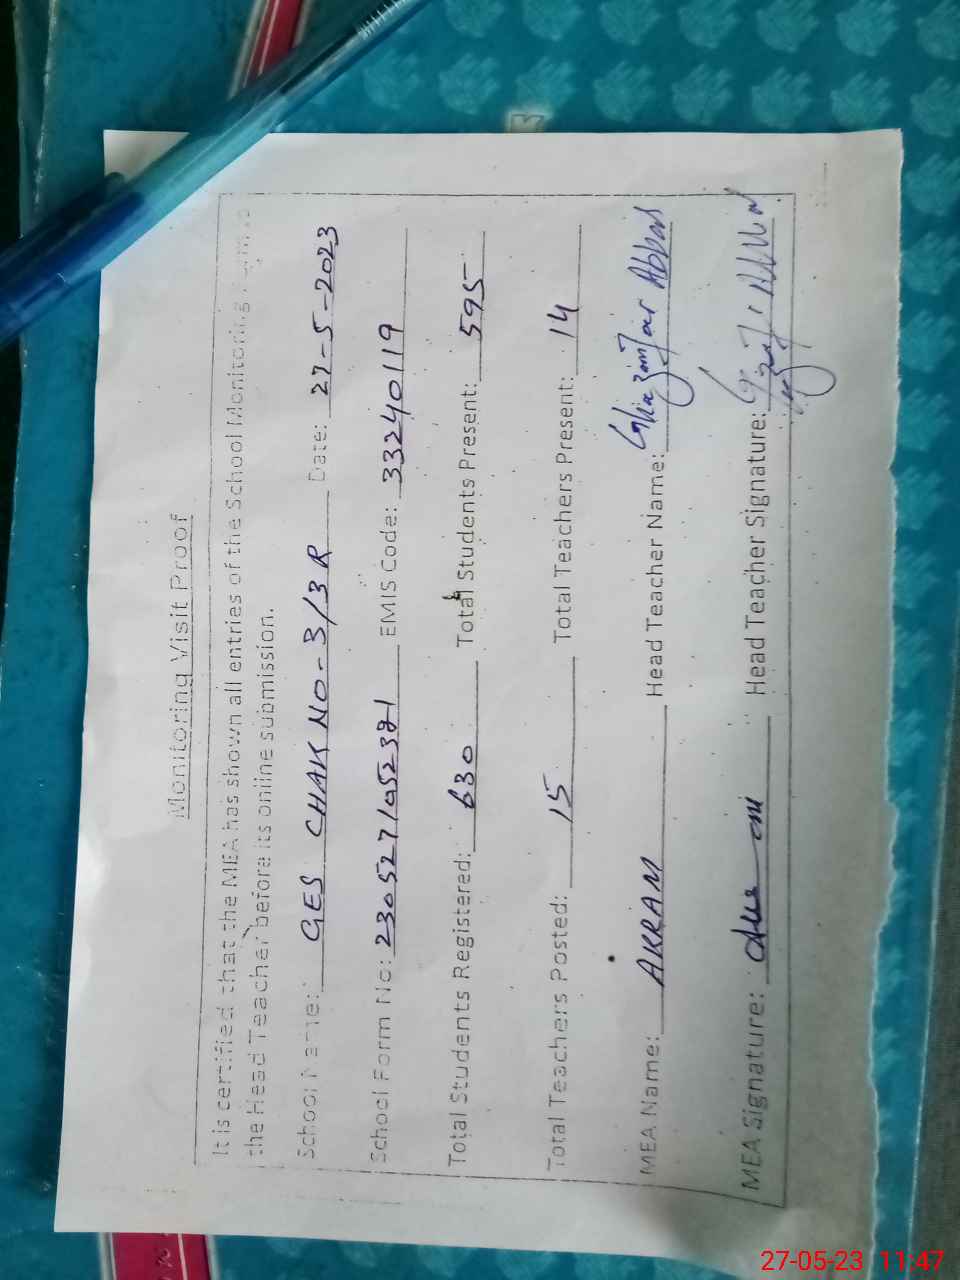 Monitoring Visit Proof
It is certified that the MEA has shown all entries of the School Monitoring
the Head Teacher before its online submission.
School Name: GES CHAK NO-3/3R Date: 27-5-2023
School Form No: EMIS Code: 33240119
Total Students Registered: 630 Total Students Present: 595
Total Teachers Posted: 15 Total Teachers Present: 14
MEA Name: AKRAM Head Teacher Name: Ghazanfar Abbas
MEA Signature: Head Teacher Signature:
27-05-23 11:47